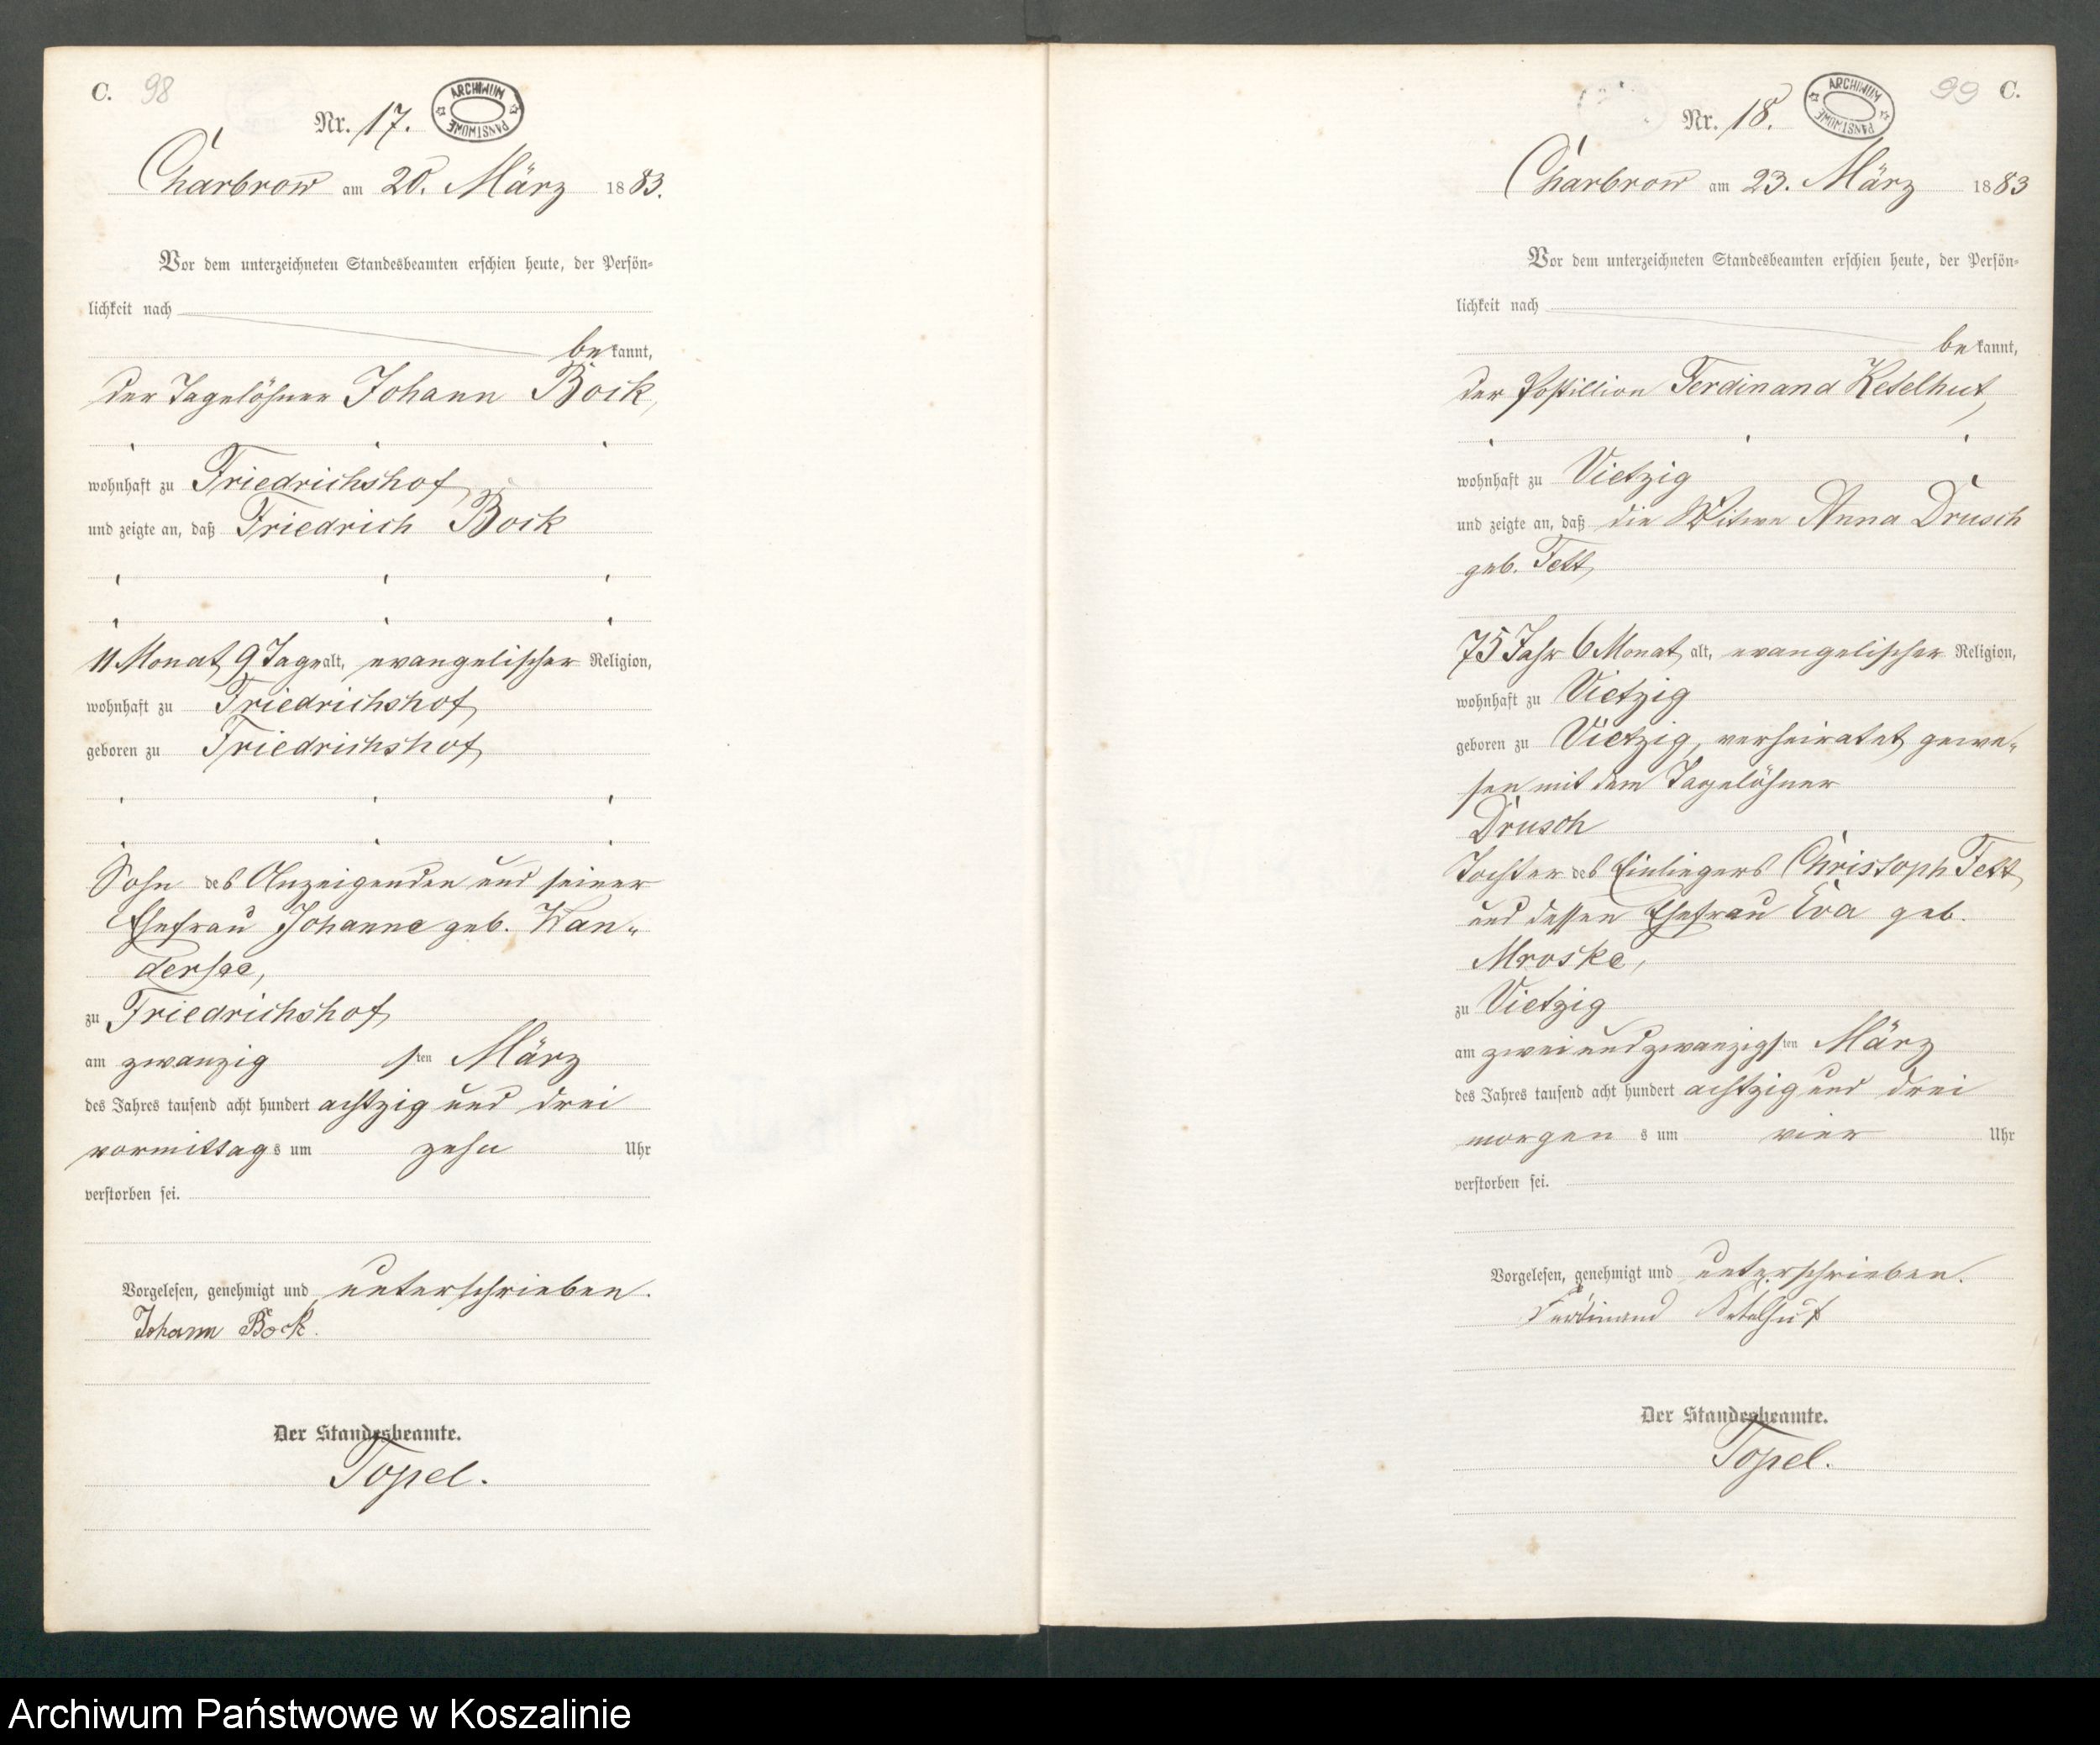 C. 98
Nr. 17.
ARCHIWUM PAŃSTWOWE
Charbrow am 20. März 1883.
Vor dem unterzeichneten Standesbeamten erschien heute, der Persön-
lichkeit nach
bekannt,
der Tagelöhner Johann Bock,
wohnhaft zu Friedrichshof
und zeigte an, daß Friedrich Bock
11 Monat, 9 Tage alt, evangelischer Religion,
wohnhaft zu Friedrichshof,
geboren zu Friedrichshof,
Sohn des Anzeigenden und seiner
Ehefrau Johanne geb. Wan-
dersee,
zu Friedrichshof,
am zwanzigsten März
des Jahres tausend acht hundert achtzig und drei
vormittags um zehn Uhr
verstorben sei.
Vorgelesen, genehmigt und unterschrieben.
Johann Bock.
Der Standesbeamte.
Topel.
99 C.
Nr. 18.
ARCHIWUM PAŃSTWOWE
Charbrow am 23. März 1883
Vor dem unterzeichneten Standesbeamten erschien heute, der Persön-
lichkeit nach
bekannt,
der Postillion Ferdinand Ketelhut,
wohnhaft zu Vietzig
und zeigte an, daß die Witwe Anna Drusch
geb. Tett,
75 Jahr 6 Monat, alt, evangelischer Religion,
wohnhaft zu Vietzig
geboren zu Vietzig, verheiratet gewe-
sen mit dem Tagelöhner
Drusch
Tochter des Einliegers Christoph Tett,
und dessen Ehefrau Eva geb.
Mroske,
zu Vietzig
am zwei und zwanzigsten März
des Jahres tausend acht hundert achtzig und drei
morgens um vier Uhr
verstorben sei.
Vorgelesen, genehmigt und unterschrieben.
Ferdinand Ketelhut
Der Standesbeamte.
Topel.
Archiwum Państwowe w Koszalinie